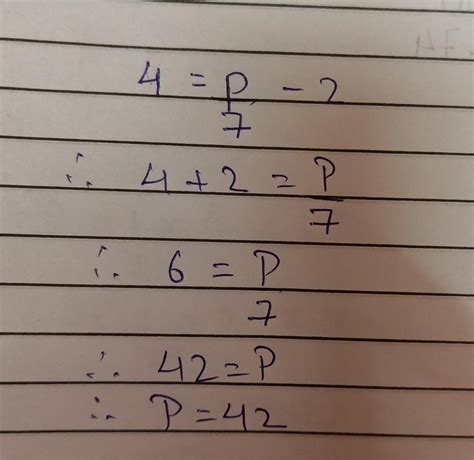 4 = P/7 - 2
∴ 4 + 2 = P/7
∴ 6 = P/7
∴ 42 = P
∴ P = 42